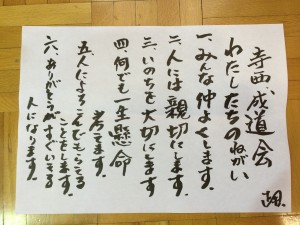 寺西、成道会
わたしたちのねがい
一、みんな仲よくします。
二、人には親切にします。
三、いのちを大切にします。
四、何でも一生懸命
考えます。
五、人によろこんでもらえる
ことをします。
六、ありがとうがすぐいえる
人になります。